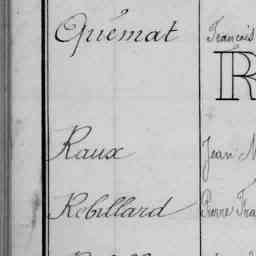 Quémat François
R
Raux Jean M
Rebillard Pierre Fra